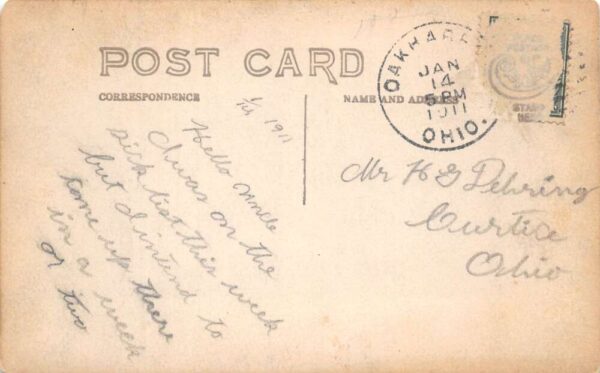 POST CARD
CORRESPONDENCE
NAME AND ADDRESS
OAKHAR
JAN
14
5 PM
1911
OHIO.
1911
Hello Uncle
I was on the
sick list this week
but I intend to
come up there
in a week
or two
Mr H G Dehring
Curtice
Ohio